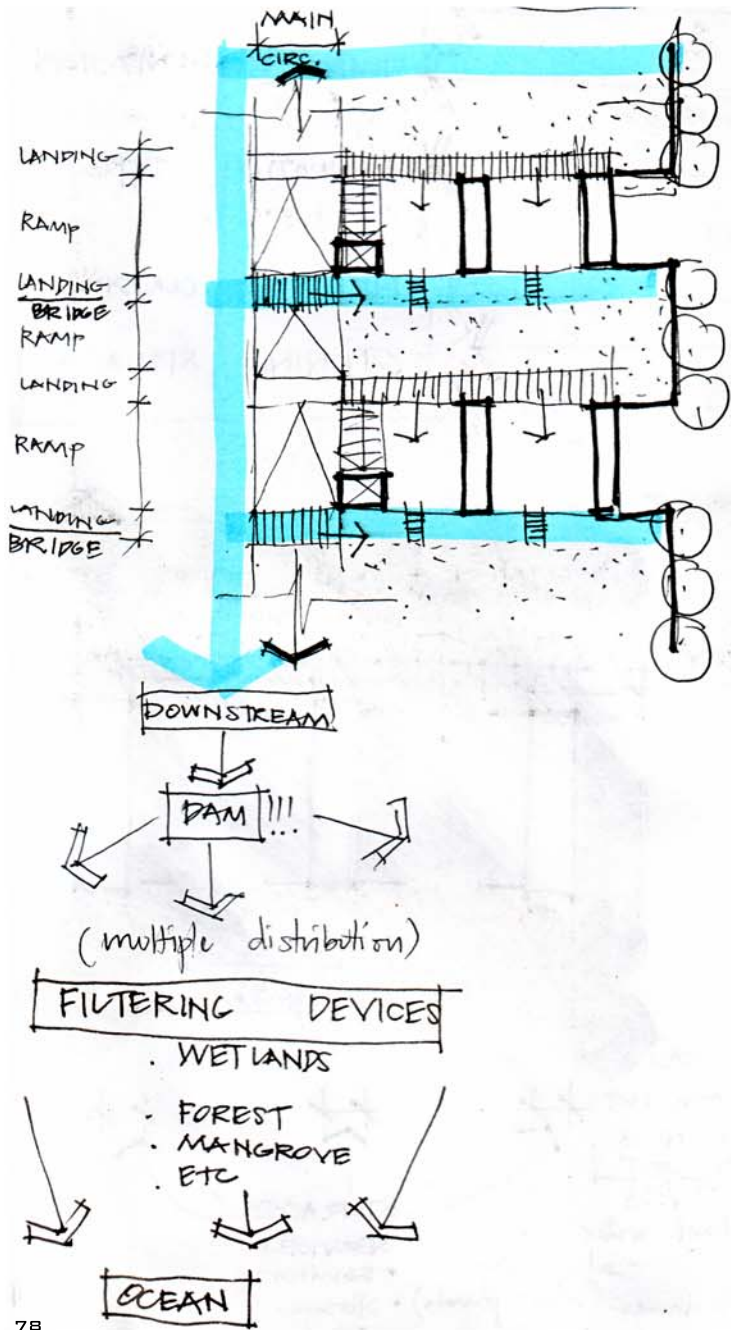 MAIN
CIRC.
LANDING
RAMP
LANDING
BRIDGE
RAMP
LANDING
RAMP
LANDING
BRIDGE
DOWNSTREAM
DAM !!!
(multiple distribution)
FILTERING DEVICES
. WETLANDS
. FOREST
. MANGROVE
. ETC
OCEAN
78